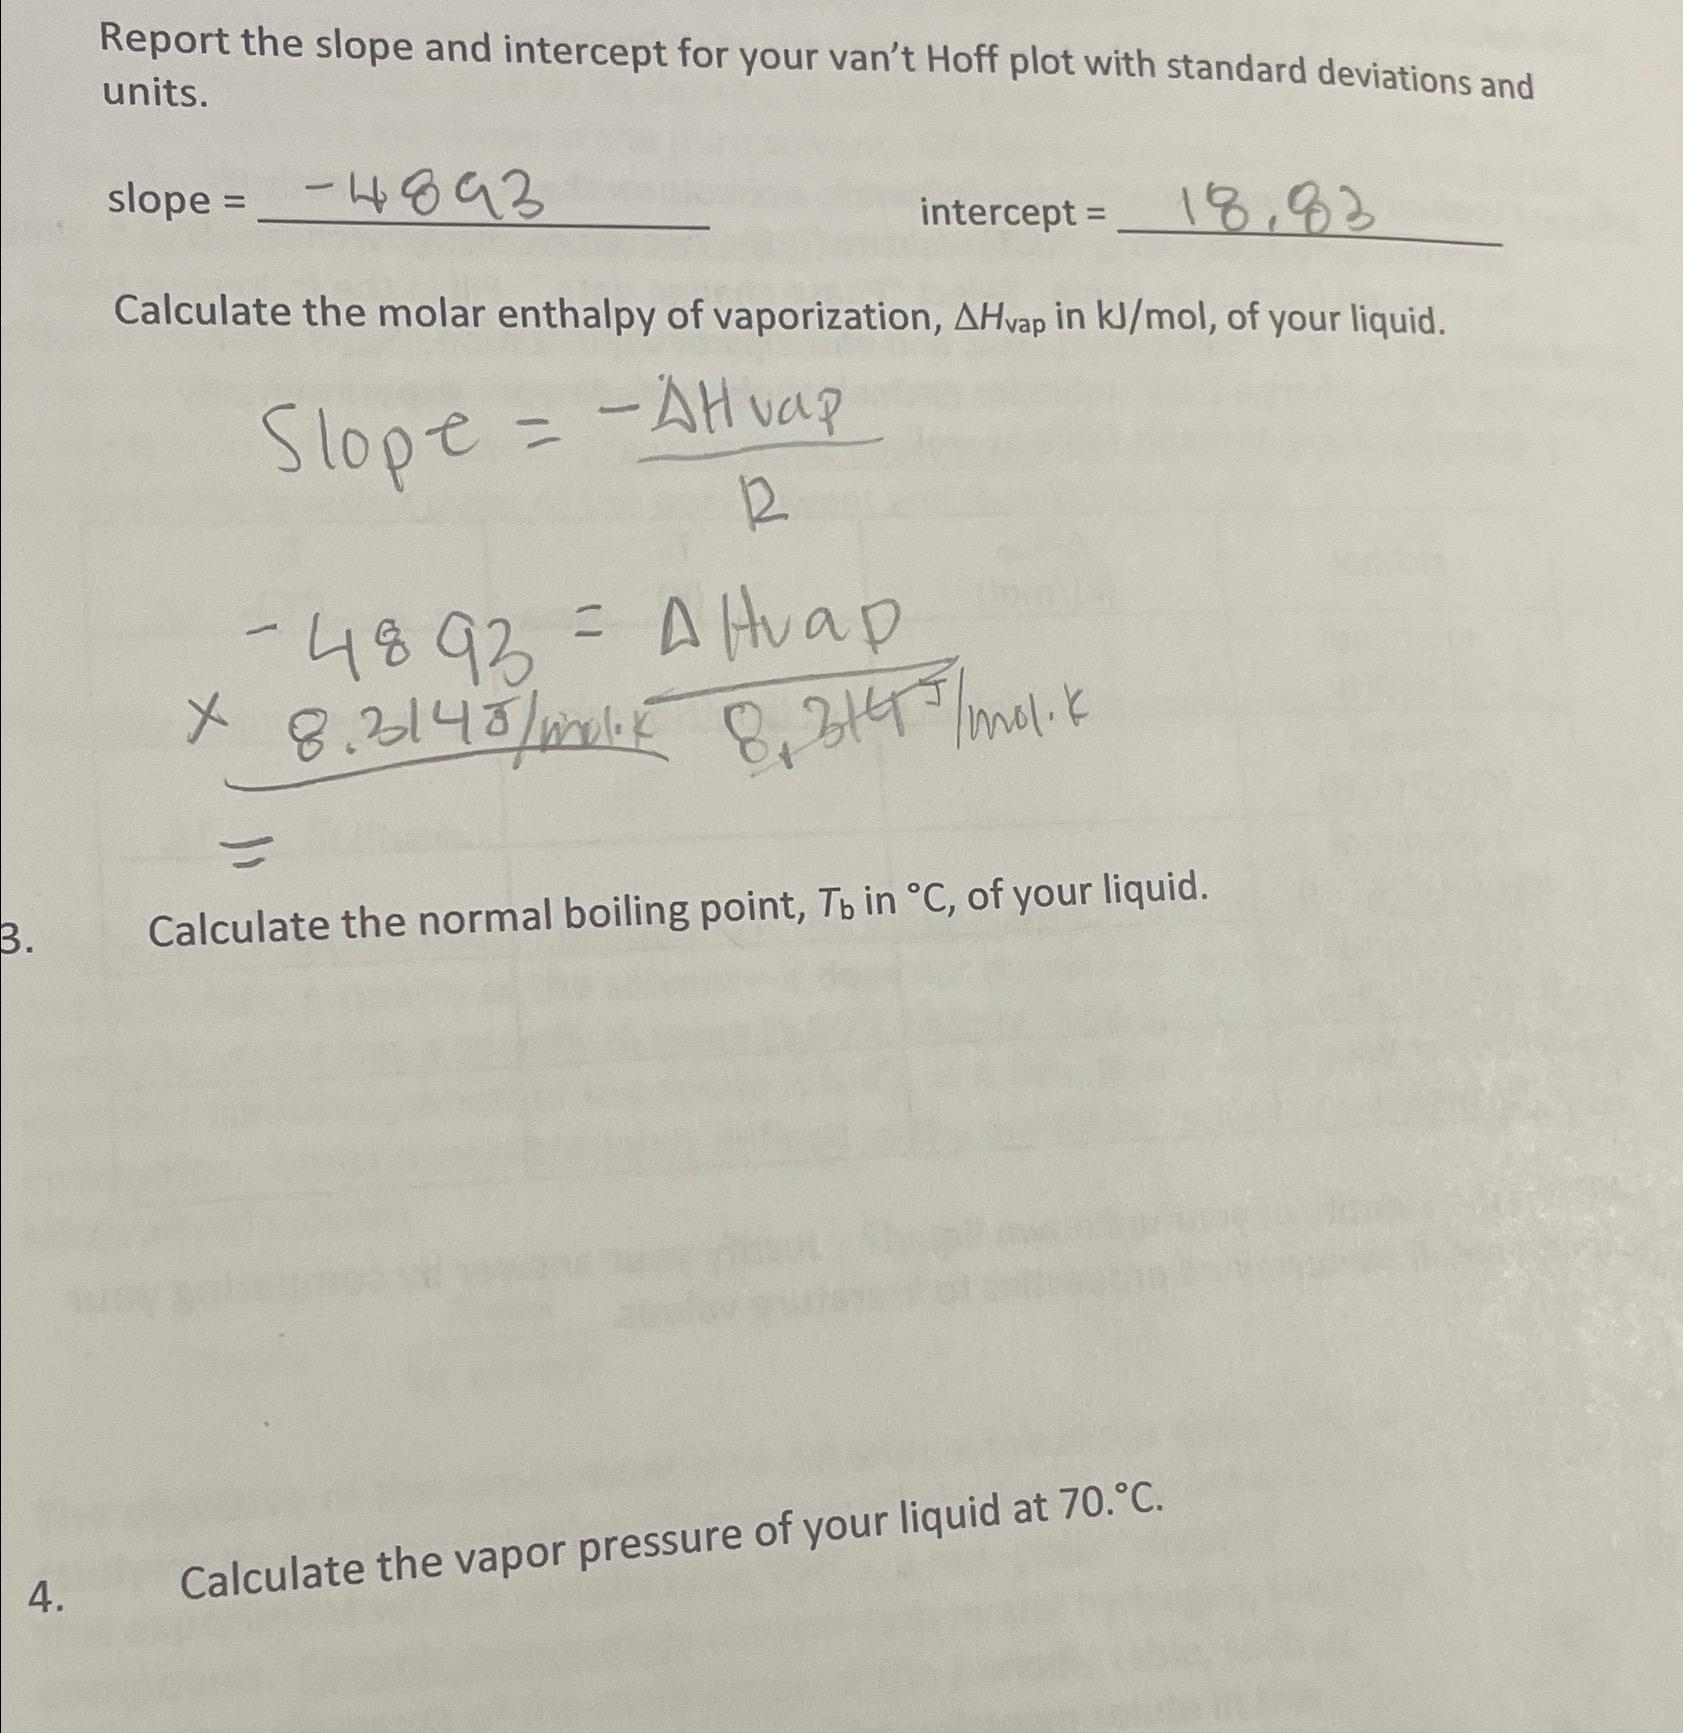 Report the slope and intercept for your van't Hoff plot with standard deviations and
units.
slope = -4893 intercept = 18.83
Calculate the molar enthalpy of vaporization, ΔHvap in kJ/mol, of your liquid.
Slope = -ΔHvap
R
-4893 = ΔHvap
x 8.314 J/mol.k 8.314 J/mol.k
=
3. Calculate the normal boiling point, Tb in °C, of your liquid.
4. Calculate the vapor pressure of your liquid at 70.°C.